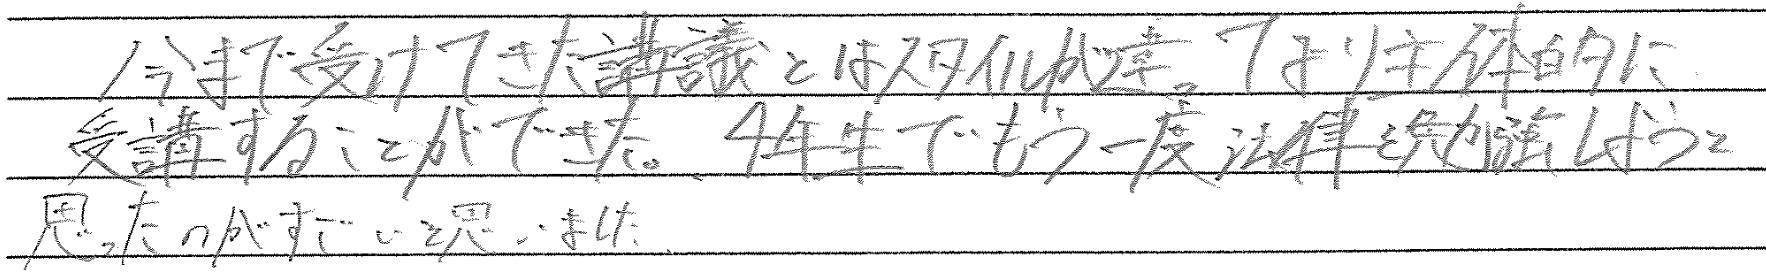 今まで受けてきた講議とはスタイルが違ってより主体的に
受講することができた。4年生でもう一度法律を勉強しようと
思ったのがすごいと思いました